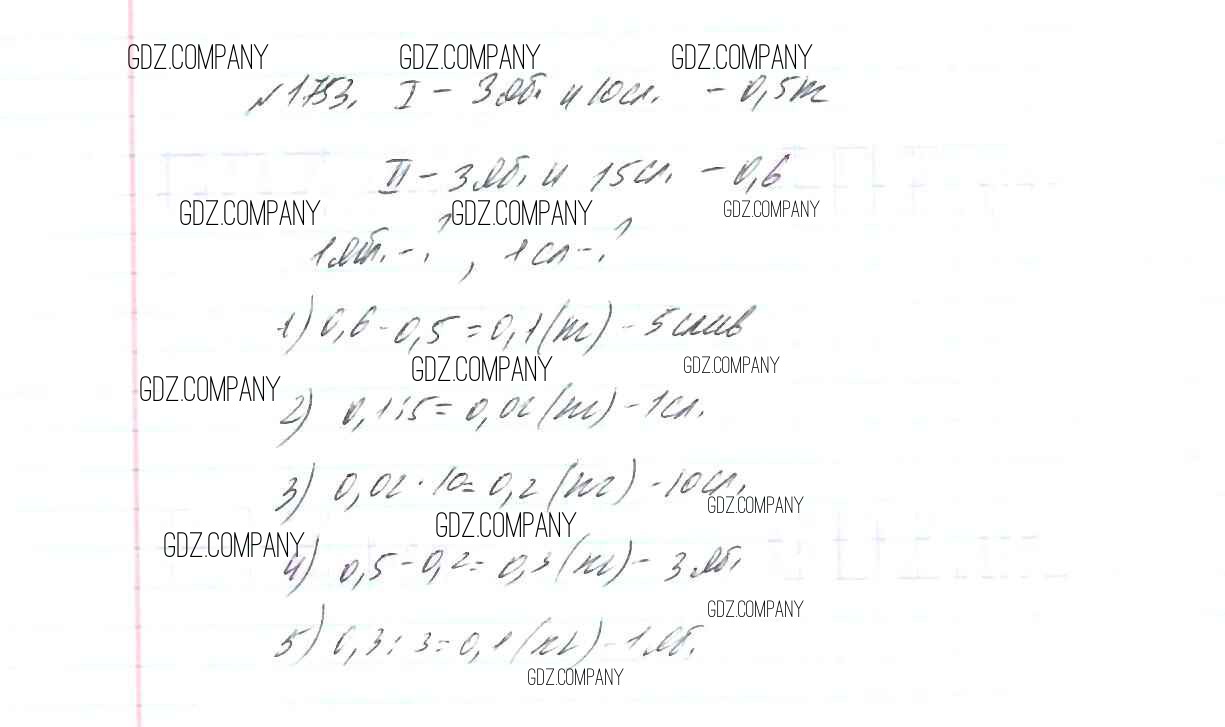 GDZ.COMPANY GDZ.COMPANY GDZ.COMPANY
№1753. I – 3 яб. и 10 сл. – 0,5 т
II – 3 яб. и 15 сл. – 0,6
GDZ.COMPANY GDZ.COMPANY GDZ.COMPANY
1 яб. – ?, 1 сл – ?
1) 0,6 - 0,5 = 0,1 (т) – 5 слив
GDZ.COMPANY GDZ.COMPANY GDZ.COMPANY
2) 0,1 : 5 = 0,02 (кг) – 1 сл.
3) 0,02 · 10 = 0,2 (кг) – 10 сл.
GDZ.COMPANY GDZ.COMPANY GDZ.COMPANY
4) 0,5 – 0,2 = 0,3 (кг) – 3 яб.
GDZ.COMPANY
5) 0,3 : 3 = 0,1 (кг) – 1 яб.
GDZ.COMPANY